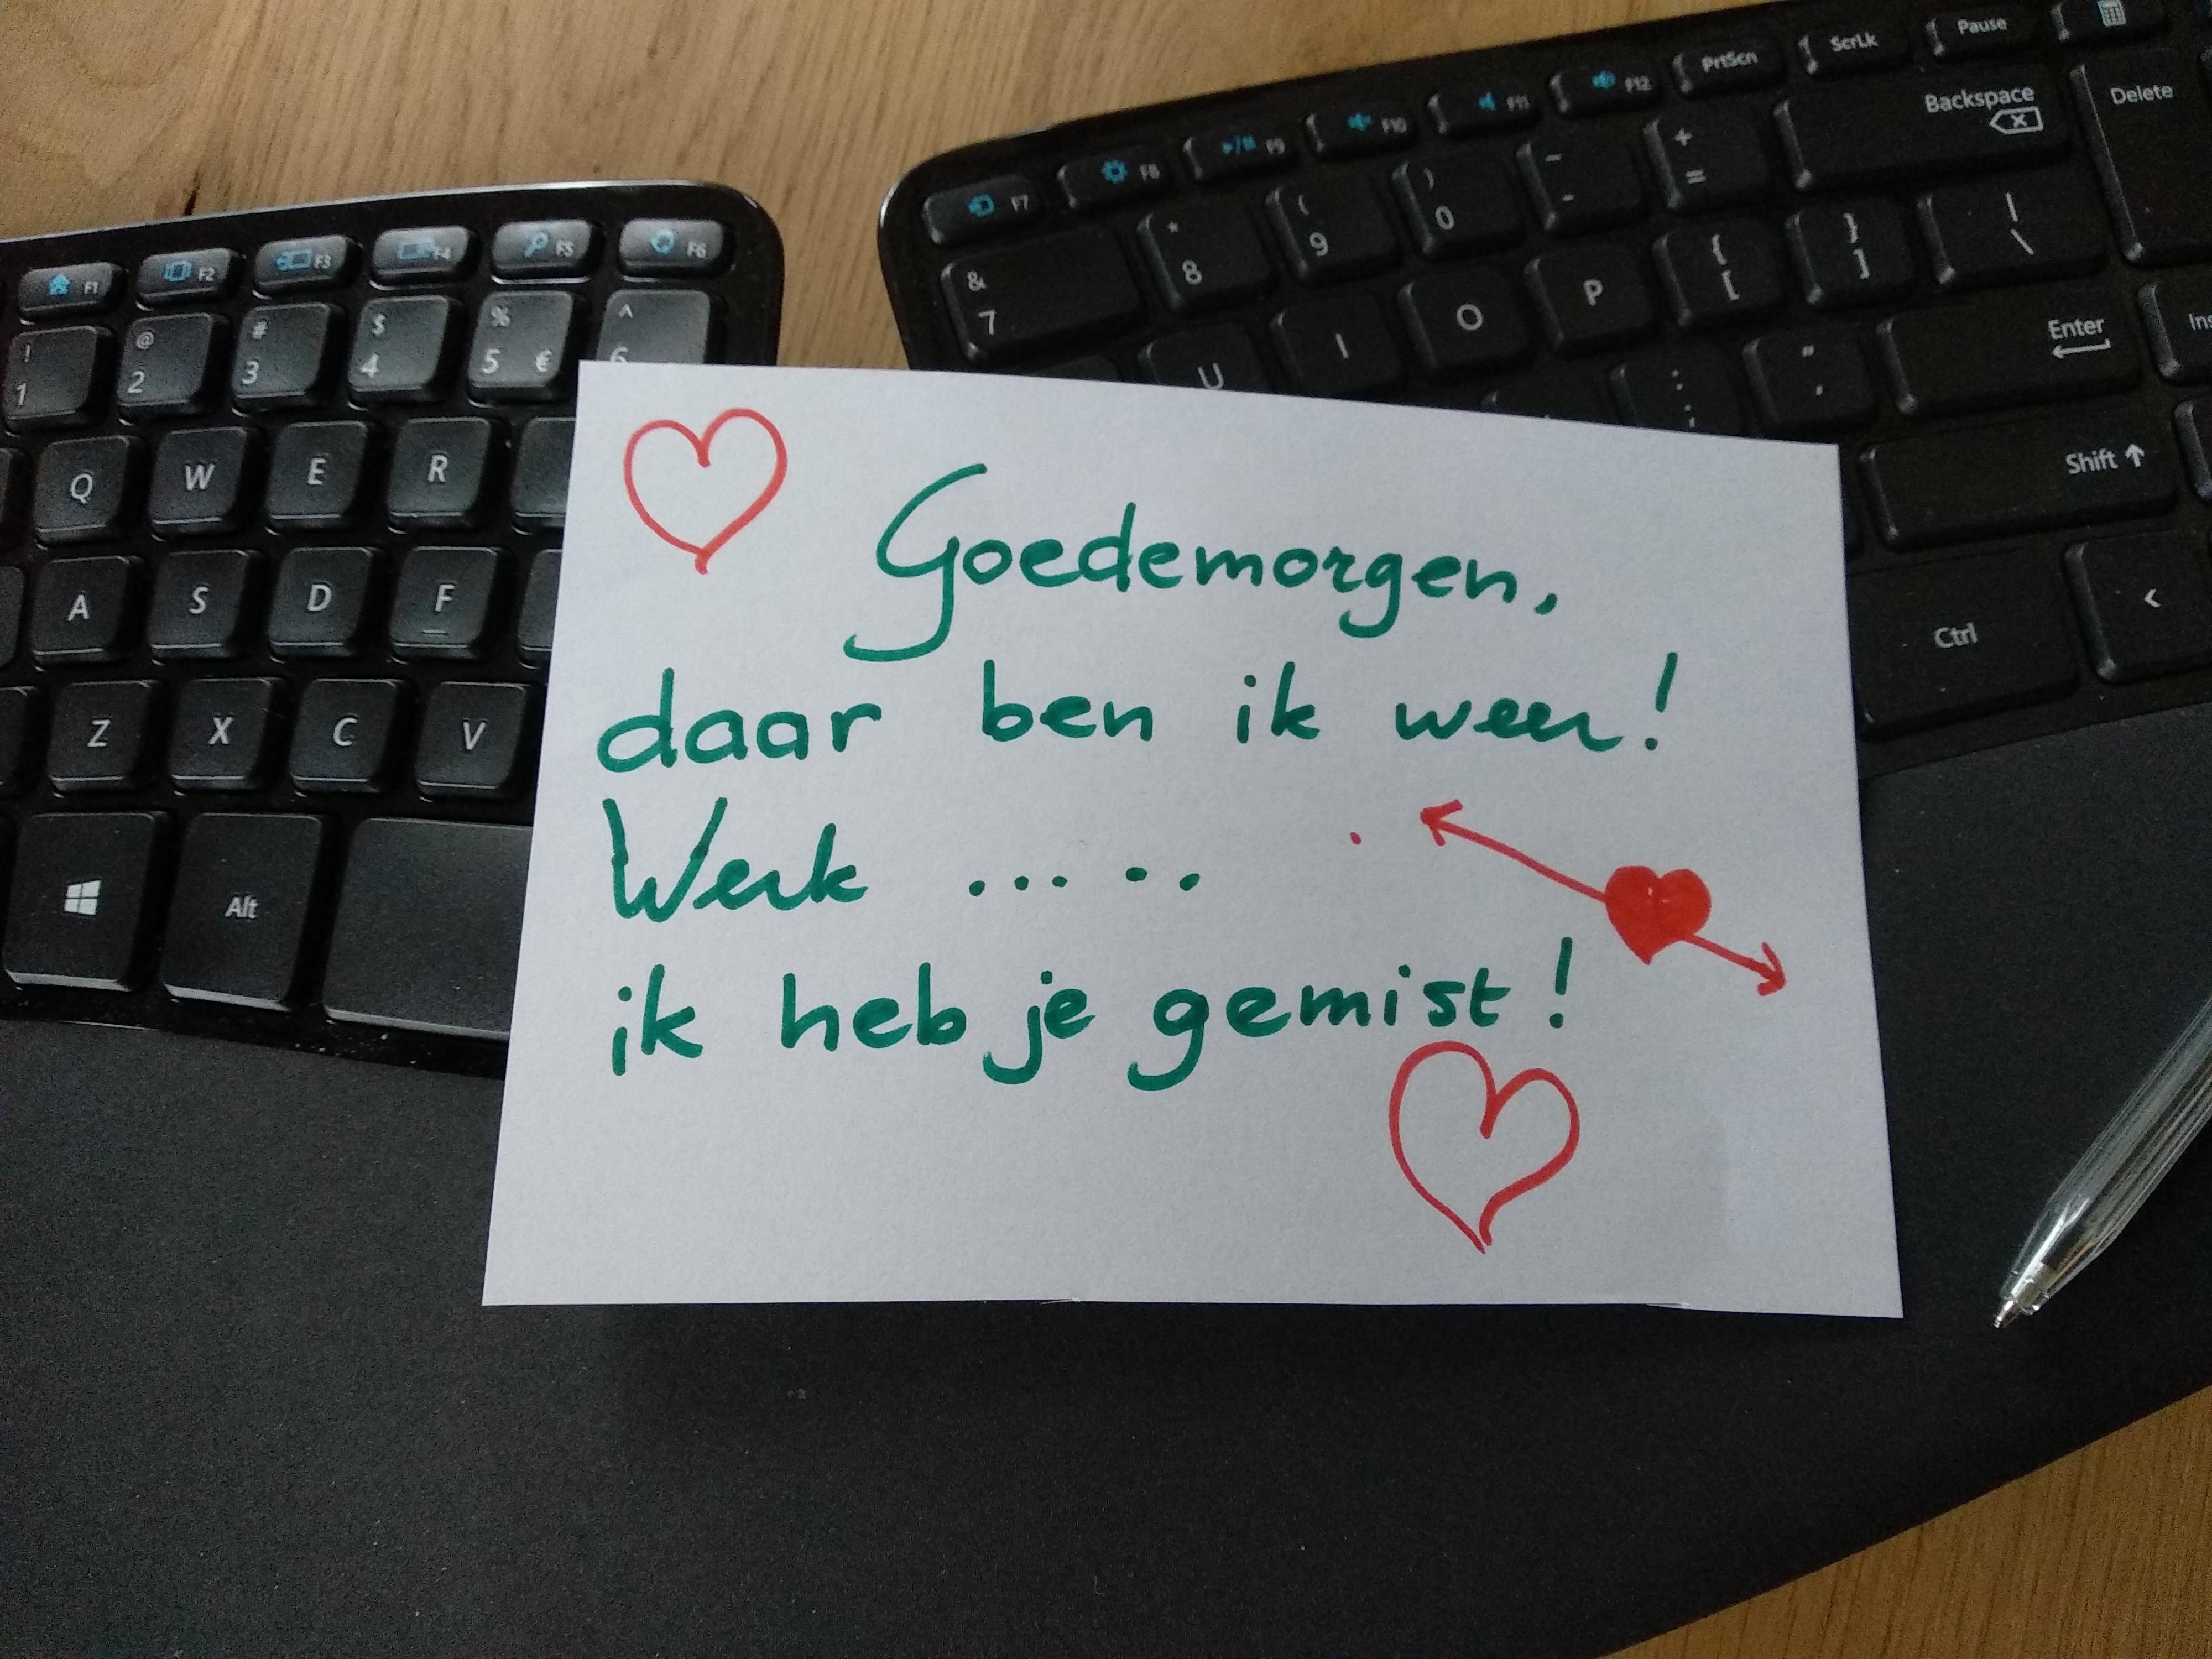 F1 F2 F3 F4 F5 F6
F7 F8 F9 F10 F11 F12 PrtScn ScrLk Pause
! 1 @ 2 # 3 $ 4 % 5 € ^ 6
& 7 * 8 ( 9 ) 0 _ - + = Backspace Delete
Q W E R
U I O P { [ } ] | \
A S D F
: ; " ' Enter Ins
Z X C V
Shift
Alt
Ctrl <
Goedemorgen,
daar ben ik weer!
Werk .....
ik heb je gemist!